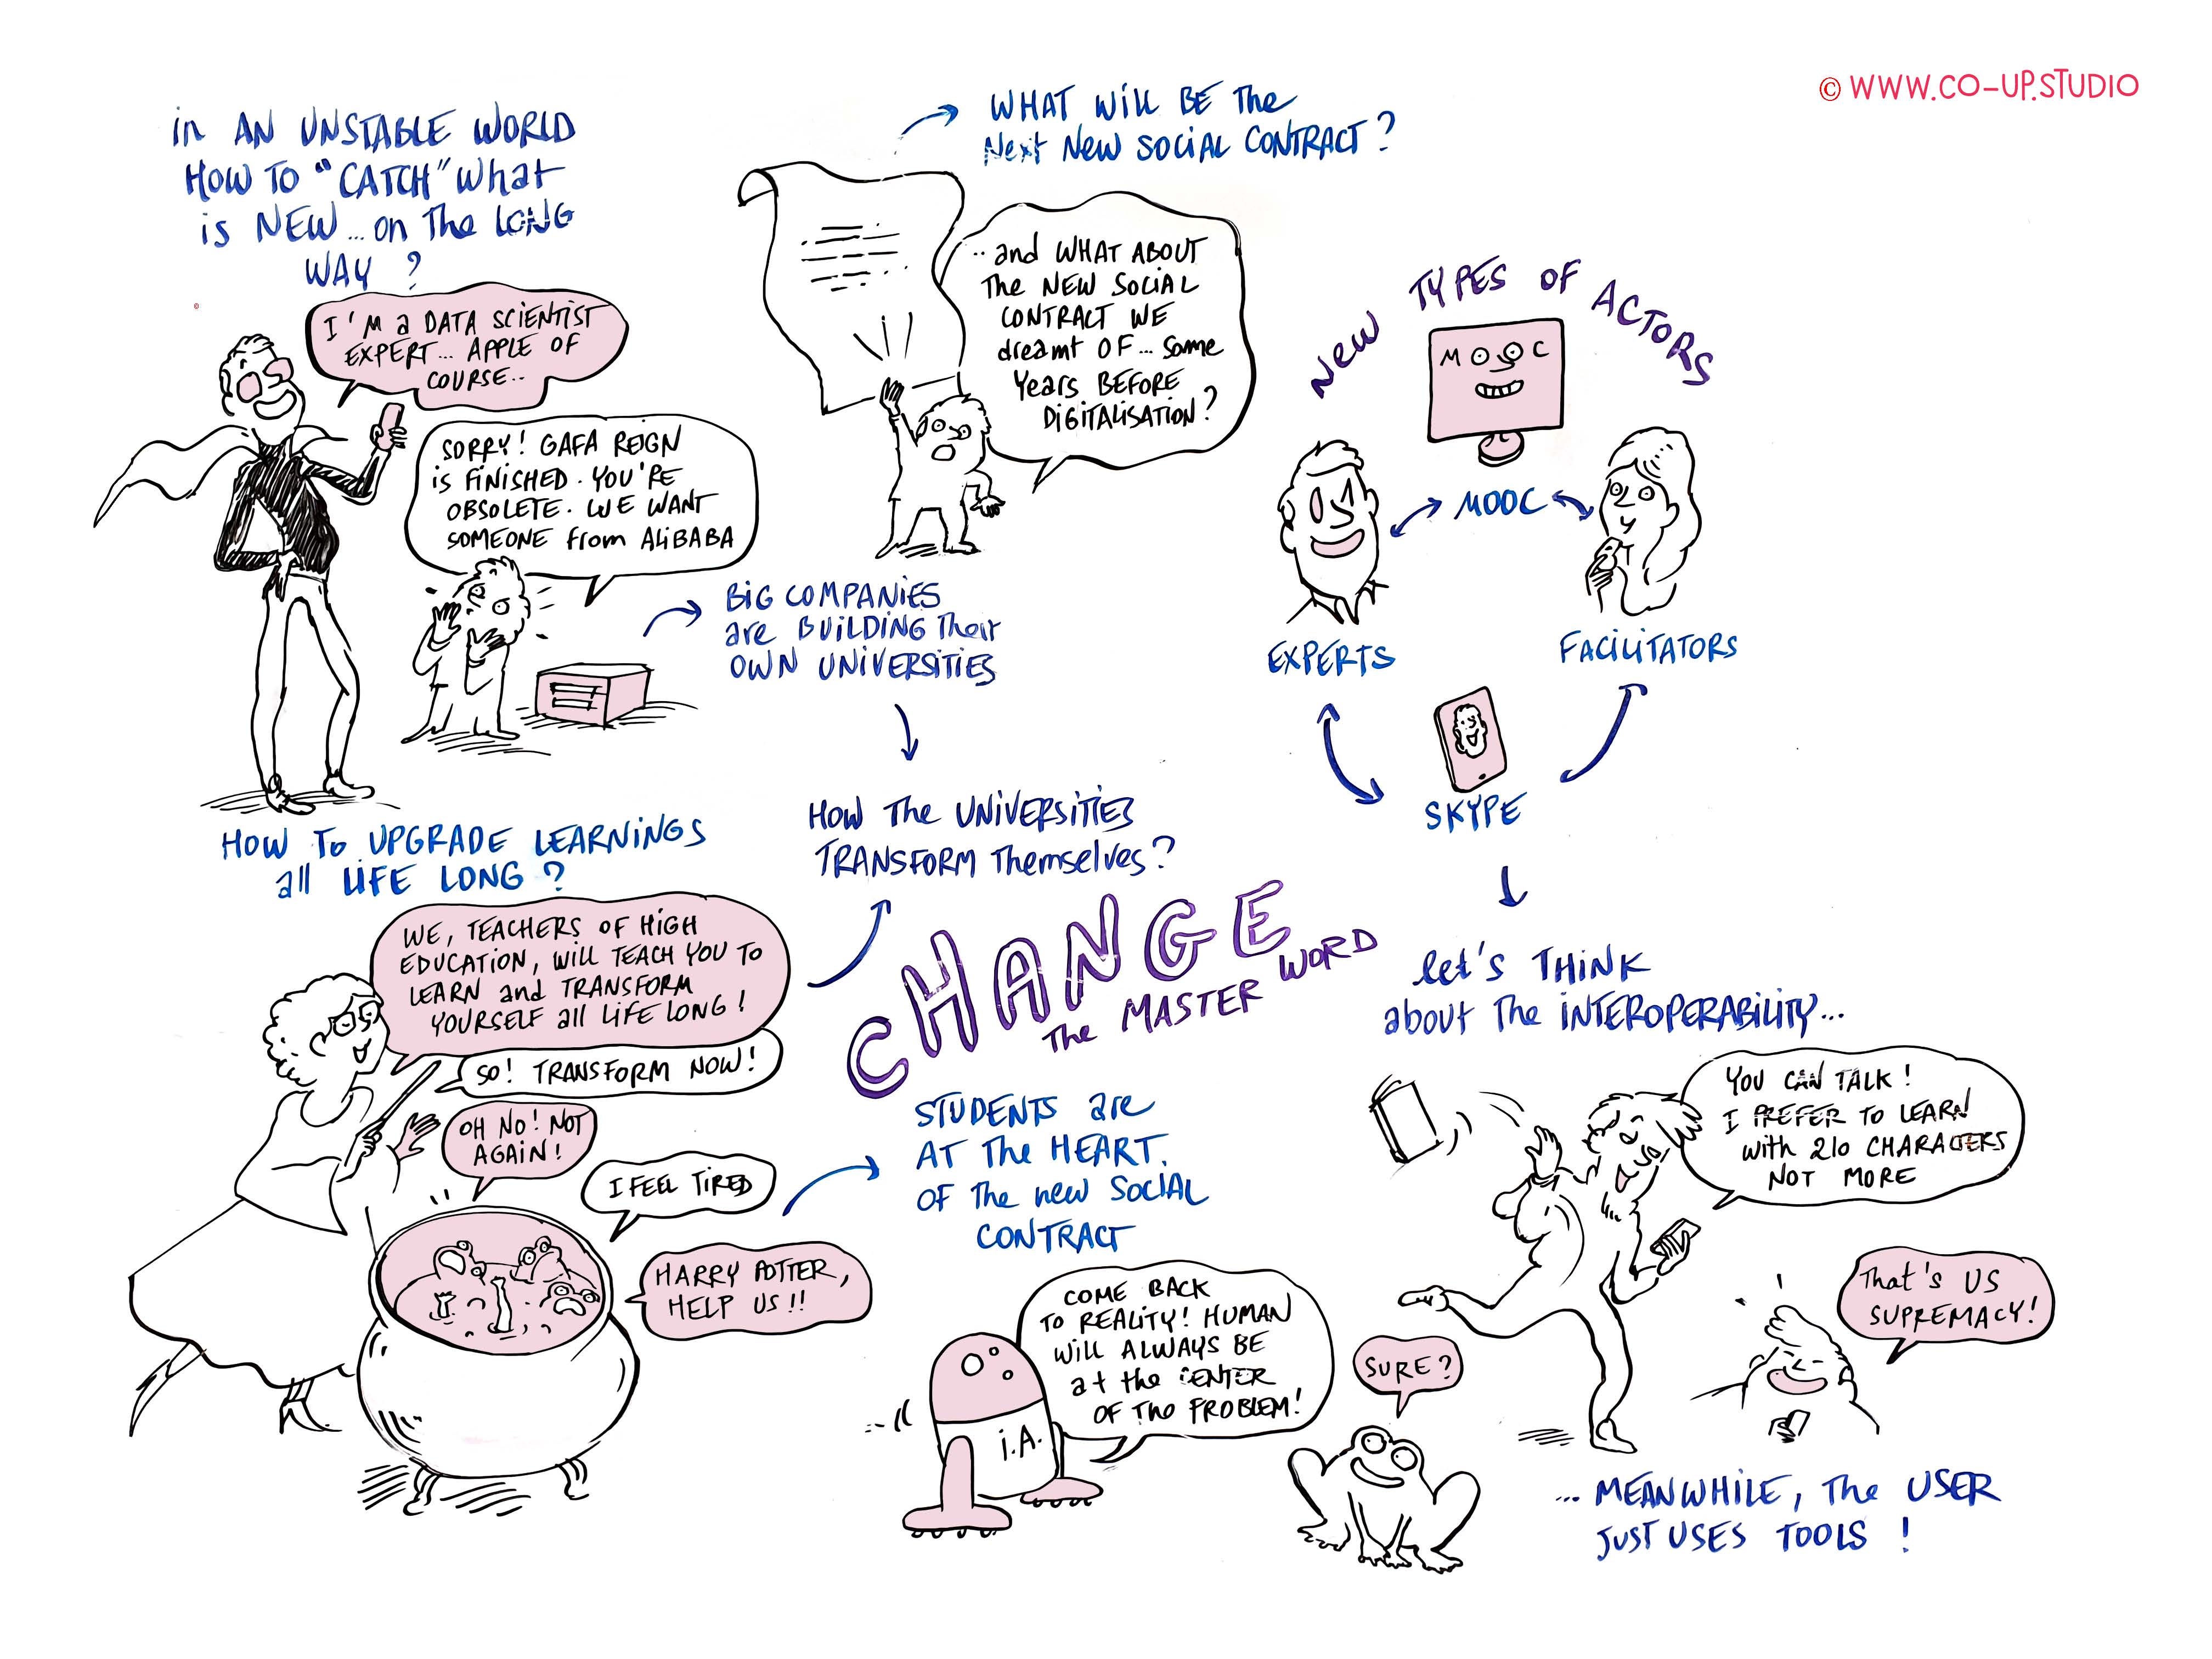 © WWW.CO-UP.STUDIO
in AN UNSTABLE WORLD
HOW TO "CATCH" what
is NEW... on The LONG
WAY ?
I'M a DATA SCIENTIST
EXPERT... APPLE OF
COURSE..
SORRY! GAFA REIGN
is FINISHED. YOU'RE
OBSOLETE. WE WANT
SOMEONE from ALIBABA
WHAT WILL BE The
Next New SOCIAL CONTRACT?
..and WHAT ABOUT
The NEW SOCIAL
CONTRACT WE
dreamt OF... Some
Years BEFORE
DIGITALISATION?
BIG COMPANIES
are BUILDING Their
OWN UNIVERSITIES
HOW The UNIVERSITIES
TRANSFORM Themselves?
NEW TYPES OF ACTORS
MOOC
MOOC
EXPERTS
FACILITATORS
SKYPE
HOW TO UPGRADE LEARNINGS
all LIFE LONG ?
WE, TEACHERS OF HIGH
EDUCATION, WILL TEACH YOU TO
LEARN and TRANSFORM
YOURSELF all LIFE LONG!
SO! TRANSFORM NOW!
OH NO! NOT
AGAIN!
I FEEL TIRED
HARRY POTTER,
HELP US!!
CHANGE
The MASTER WORD
STUDENTS are
AT The HEART.
OF The new SOCIAL
CONTRACT
COME BACK
TO REALITY! HUMAN
WILL ALWAYS BE
at the CENTER
OF THE PROBLEM!
i.A.
let's THINK
about The INTEROPERABILITY...
YOU CAN TALK!
I PREFER TO LEARN
with 210 CHARACTERS
NOT MORE
That's US
SUPREMACY!
SURE?
... MEANWHILE, The USER
JUST USES TOOLS !